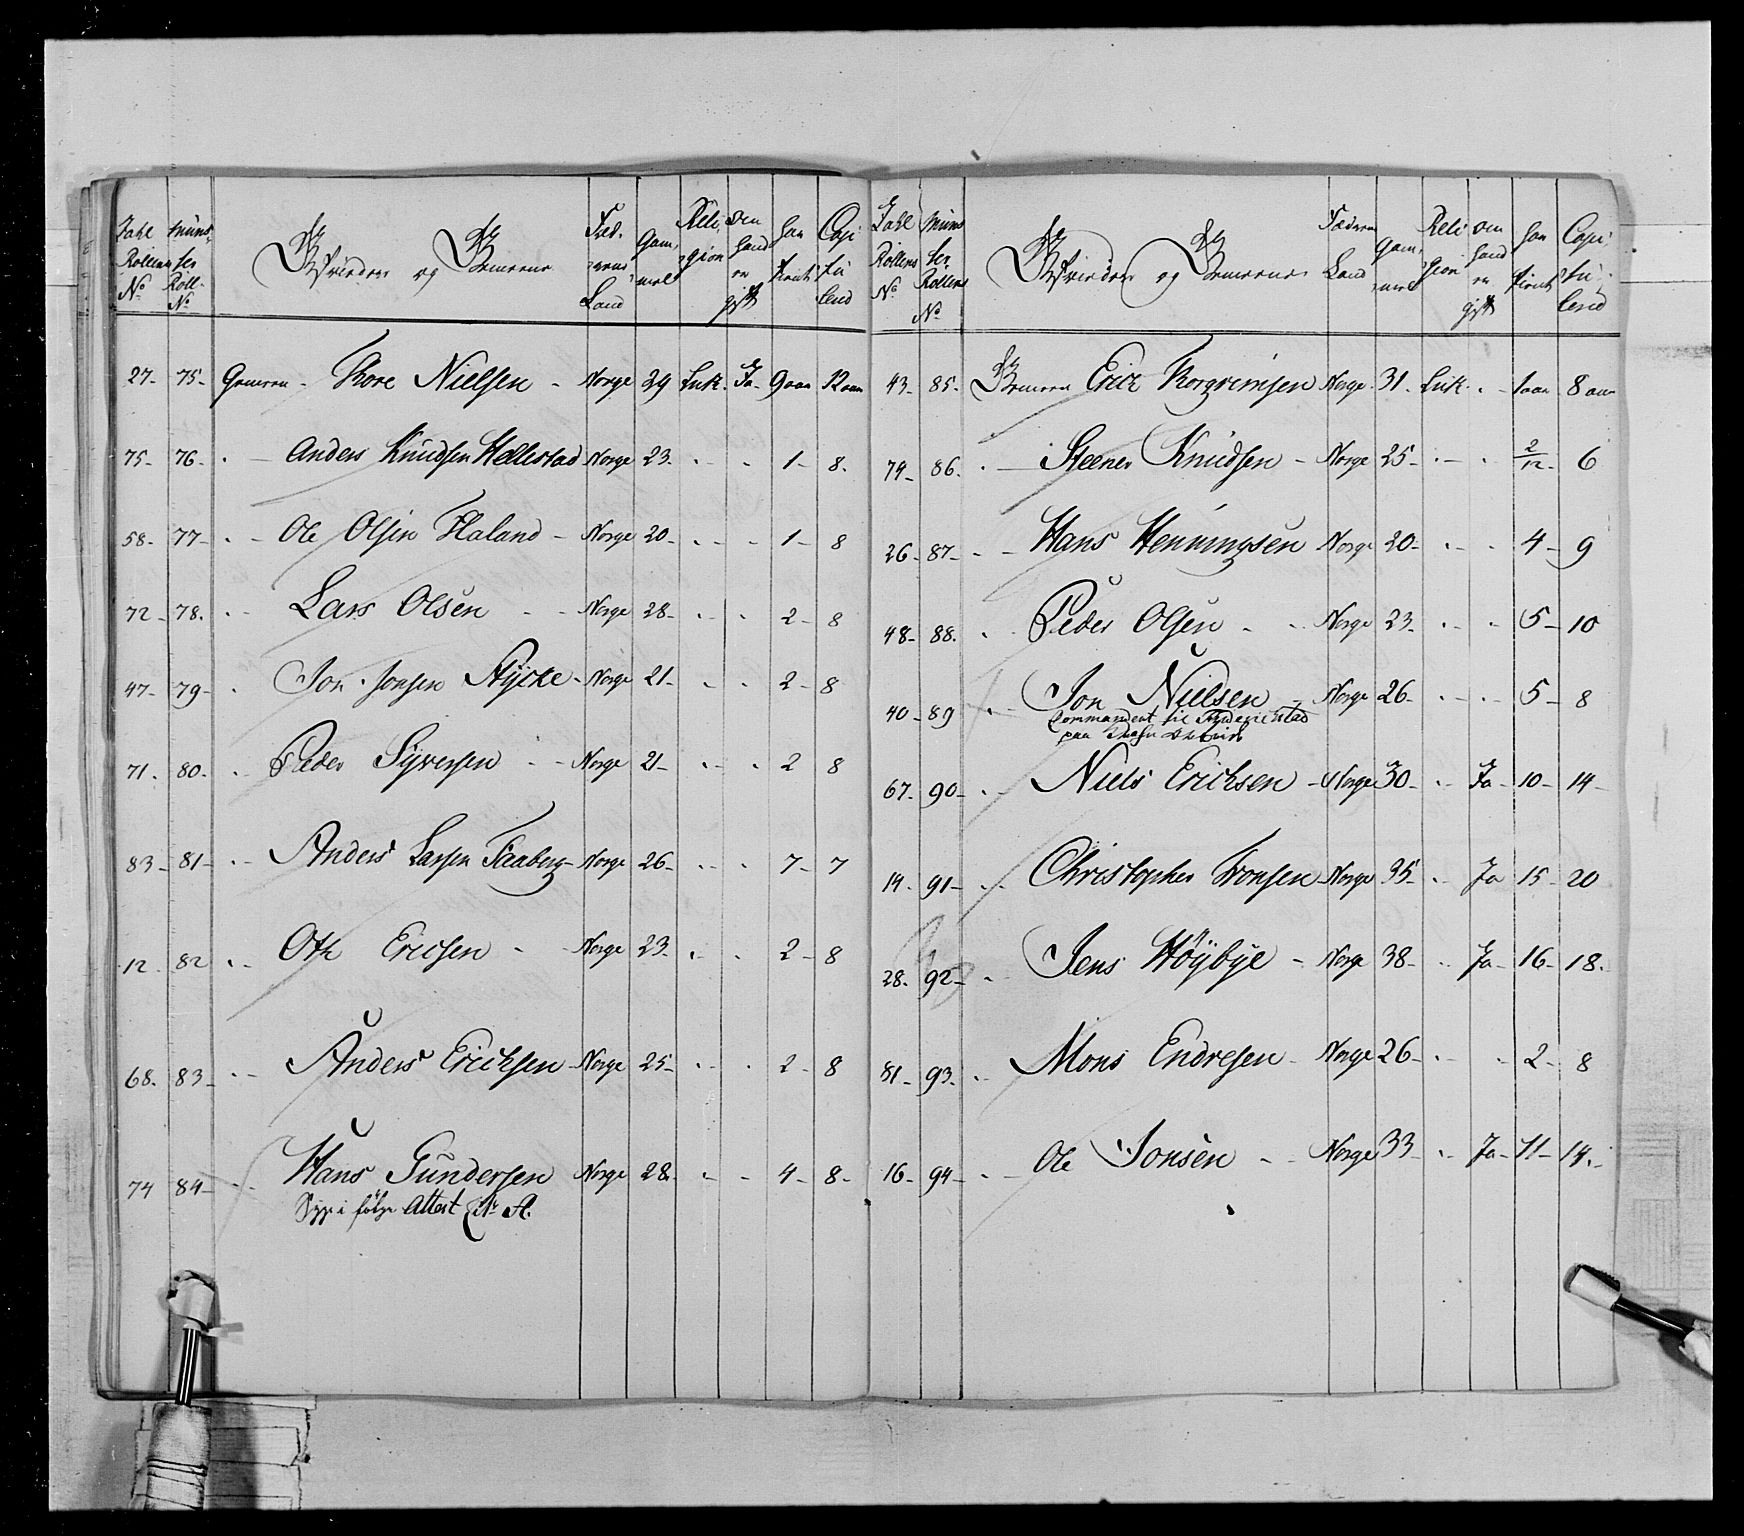 Zahl Rollens No | Münster Roll. No | Gefreedere og Gemeene | Fædrene Land | Gammel | Religion | om hand er gift | har tient | Capitulerid
27- 75- Gemeen - Thore Nielsen - Norge 29 Luth. Ja- 9 aar 12 aar
75- 76- Anders Knudsen Hellestad Norge 23. 1- 8.
58- 77- Ole Olsen Haland - Norge 20- 1- 8
72- 78. Lars Olsen - - Norge 28- 2- 8
47- 79- Jon Jonsen Stycke - Norge 21- 2- 8
71. 80. Peder Syversen - Norge 21- 2 8
83- 81- Anders Larsen Faaberg- Norge 26- 7- 7
12. 82 Ole Ericsen - Norge 23. 2- 8
68. 83- Anders Erichsen - Norge 25- 2- 8
74 84- Hans Gundersen Norge 28. 4- 8.
Syg i følge Attest No A.
Zahl Rollens No | Münster Rollens No | Gefreedere og Gemeene | Fædrene Land | Gammel | Religion | om hand er gift | har tient | Capitulerid
43- 85. Gemeen Erick Thorgrimsen Norge. 31. Luth. 1 aar 8 aar
74- 86. Steener Knudsen - Norge 25- 2/12- 6
26- 87- Hans Henningsen Norge 20- 4- 9
48- 88. Peder Olsen - Norge 23- 5- 10
40- 89 Jon Nielsen - Norge 26- 5- 8
Commandert til Friderichstad
paa
67- 90- Niels Erichsen - Norge 30- Ja- 10- 14-
14- 91- Christopher Tronsen Norge 35- Ja 15- 20
28. 92- Jens Høybye - Norge 38- Ja- 16- 18.
81- 93- Mons Endresen - Norge 26- 2- 8
16- 94- Ole Jonsen - - Norge 33- Ja- 11- 14.-